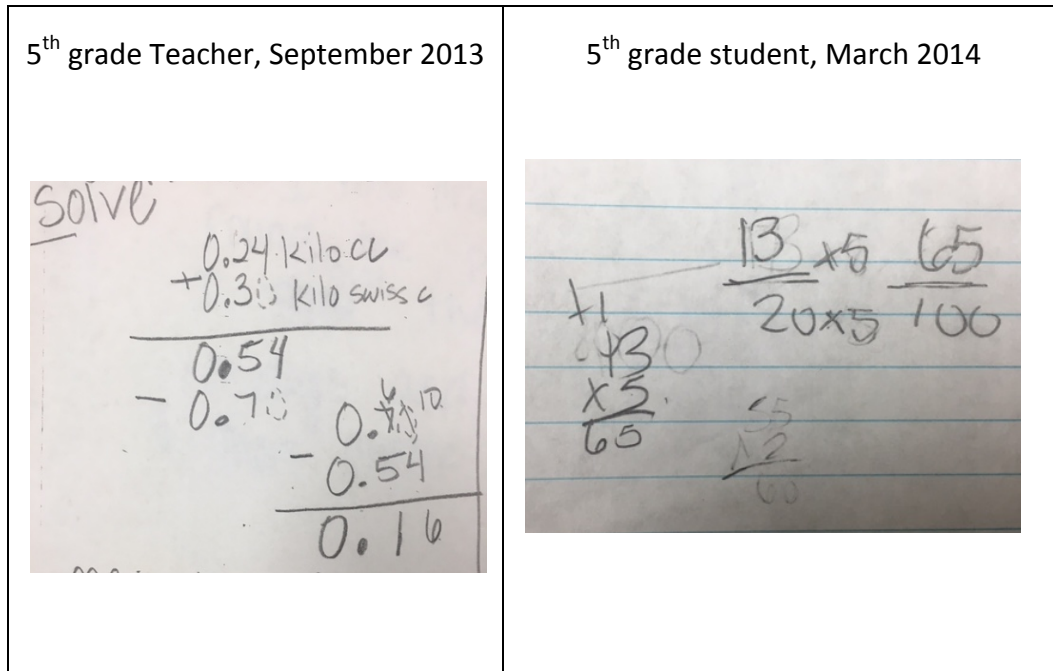 5th grade Teacher, September 2013
solve
0.24 kilo cc
+0.30 kilo swiss c
0.54
- 0.70
6 10
0.70
- 0.54
0.16
5th grade student, March 2014
13 x5 65
20 x5 100
+1
13
x5
65